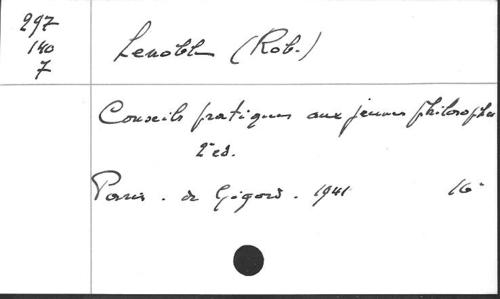 297
140
7
Lenoble (Rob.)
Conseils pratiques aux jeunes philosophes
2e ed.
Paris. de Gigord. 1941 16°